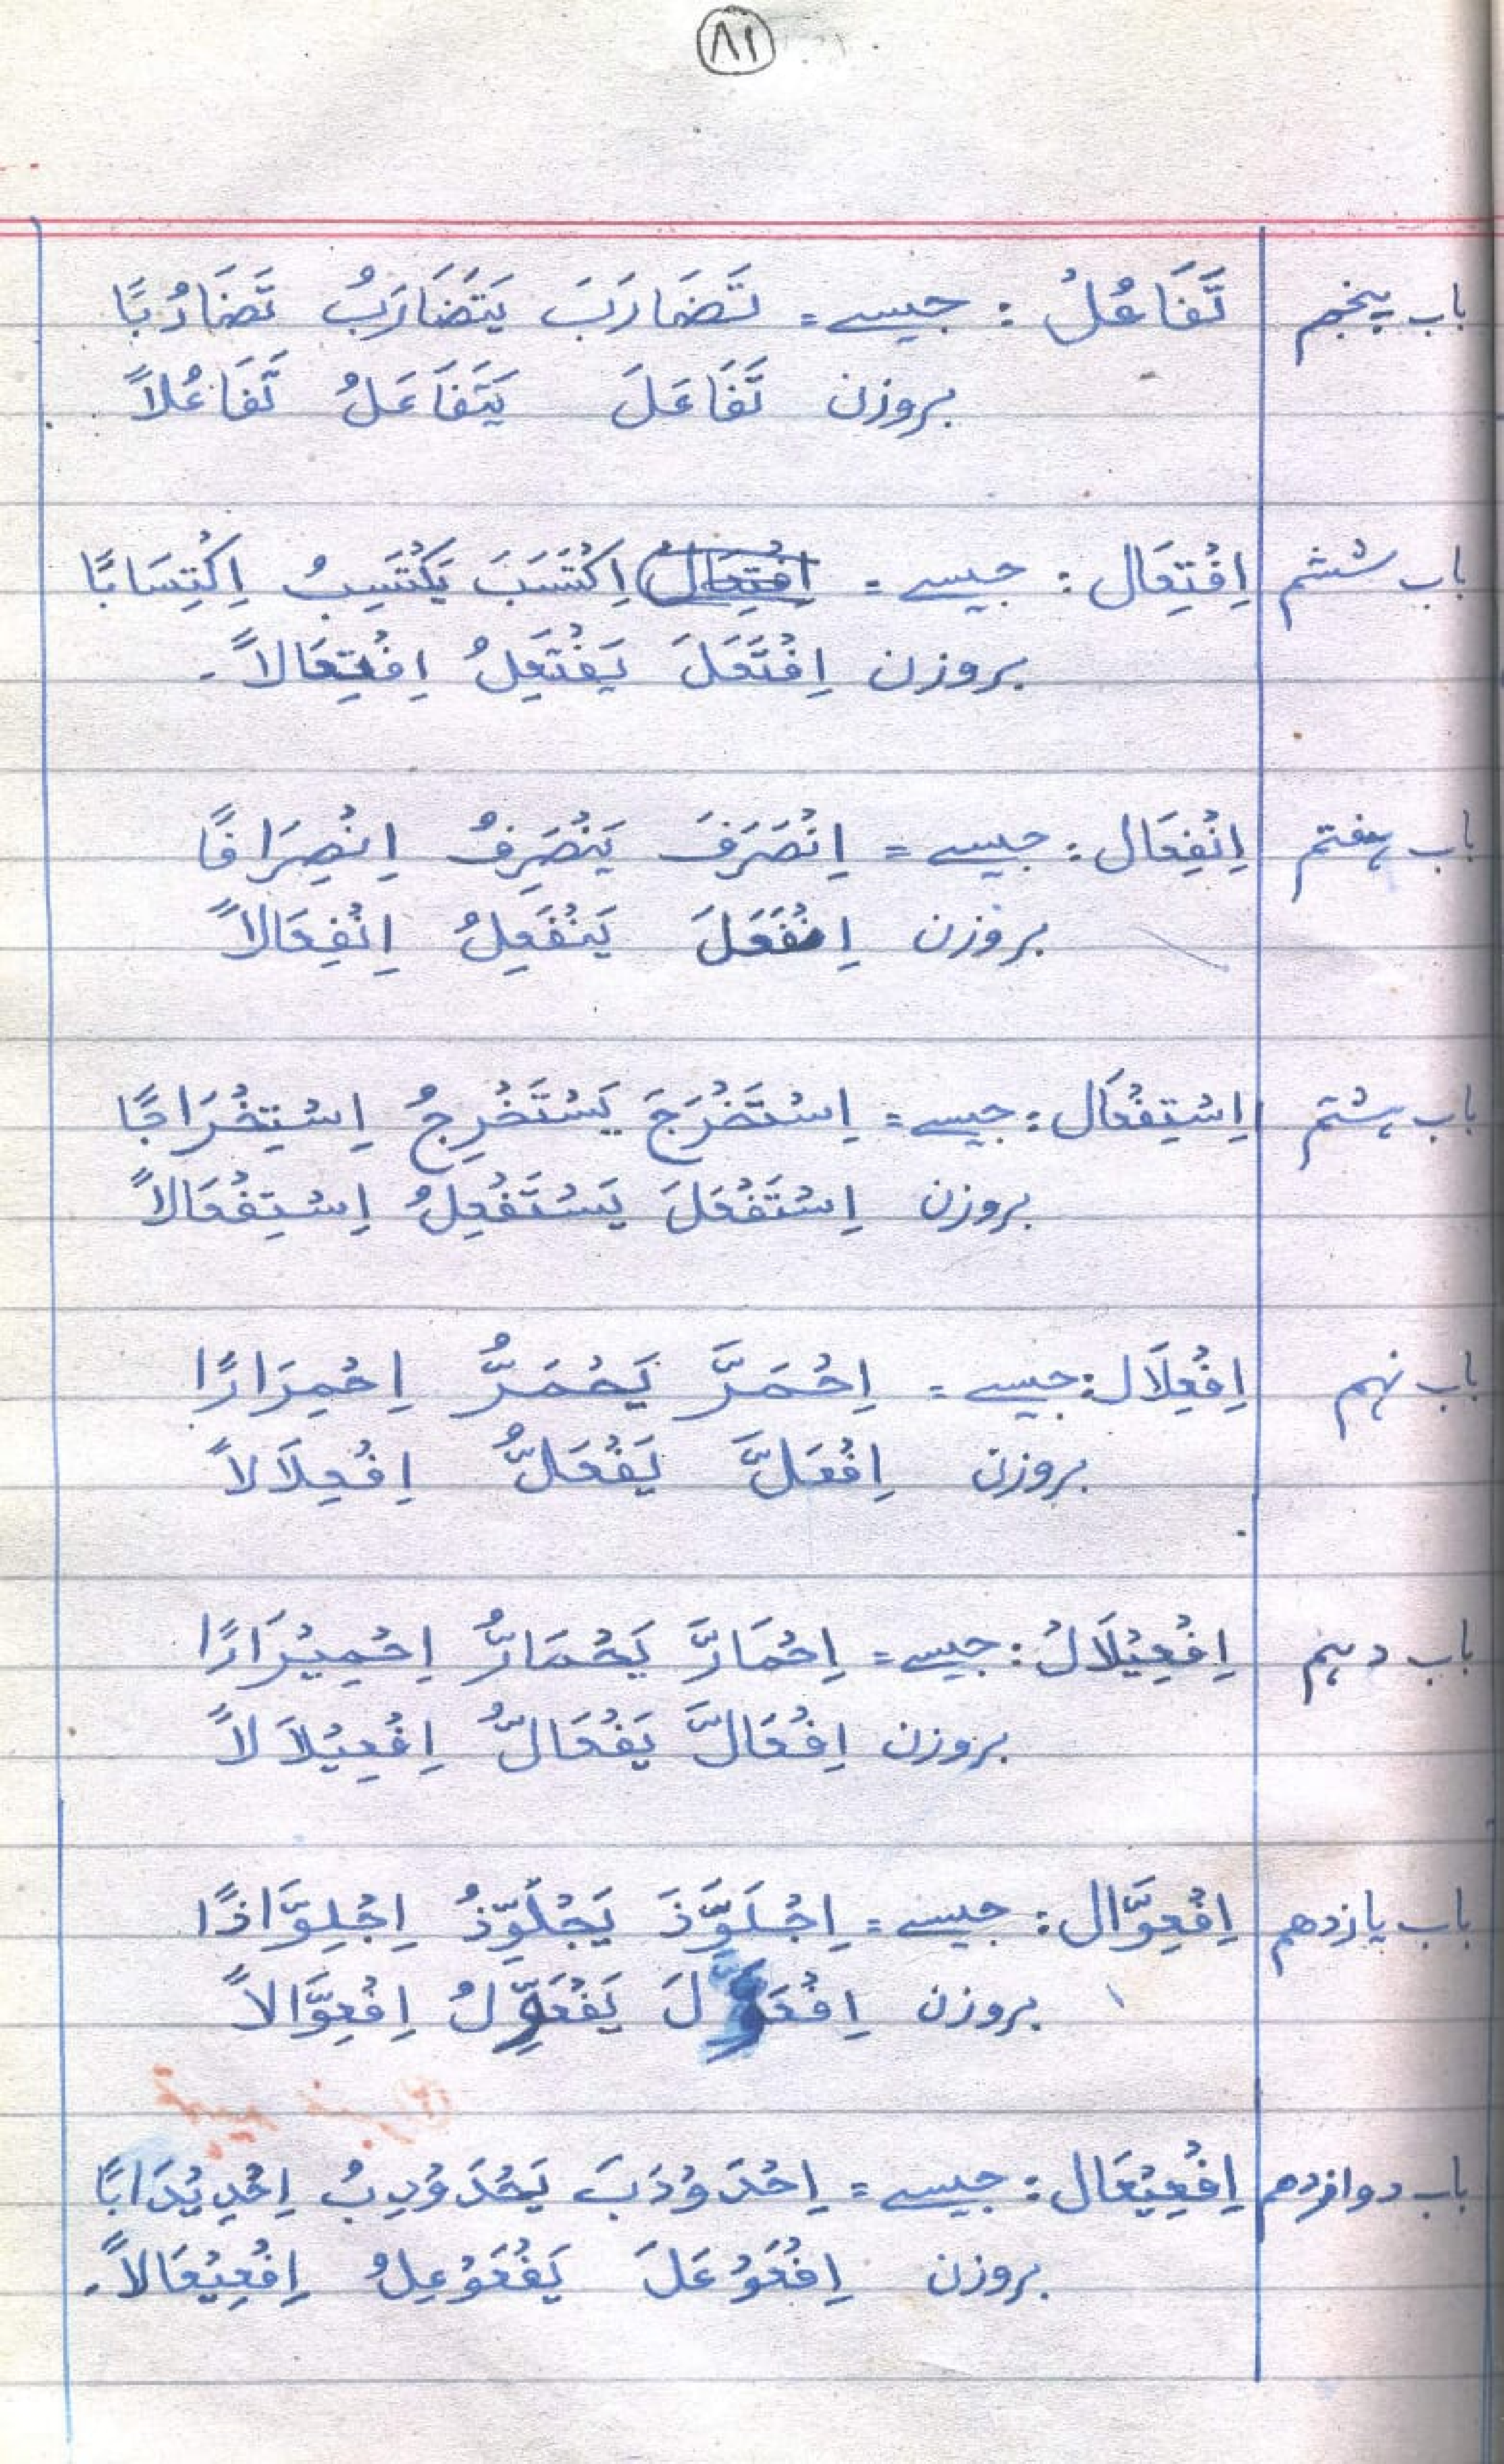 ٨١
باب پنجم تَفَاعُلُ : جیسے = تَضَارَبَ یَتَضَارَبُ تَضَارُبًا
بروزن تَفَاعَلَ یَتَفَاعَلُ تَفَاعُلاً
باب ششم اِفْتِعَال : جیسے = اِکْتَسَبَ یَکْتَسِبُ اِکْتِسَابًا
بروزن اِفْتَعَلَ یَفْتَعِلُ اِفْتِعَالاً ۔
باب ہفتم اِنْفِعَال : جیسے = اِنْصَرَفَ یَنْصَرِفُ اِنْصِرَافًا
بروزن اِنْفَعَلَ یَنْفَعِلُ اِنْفِعَالاً
باب ہشتم اِسْتِفْعَال : جیسے = اِسْتَخْرَجَ یَسْتَخْرِجُ اِسْتِخْرَاجًا
بروزن اِسْتَفْعَلَ یَسْتَفْعِلُ اِسْتِفْعَالاً
باب نہم اِفْعِلَال : جیسے = اِحْمَرَّ یَحْمَرُّ اِحْمِرَارًا
بروزن اِفْعَلَّ یَفْعَلُّ اِفْعِلَالاً
باب دہم اِفْعِیْلَالُ : جیسے = اِحْمَارَّ یَحْمَارُّ اِحْمِیْرَارًا
بروزن اِفْعَالَّ یَفْعَالُّ اِفْعِیْلَالاً
باب یازدھم اِفْعِوَّال : جیسے = اِجْلَوَّذَ یَجْلَوِّذُ اِجْلِوَّاذًا
بروزن اِفْعَوَّلَ یَفْعَوِّلُ اِفْعِوَّالاً
باب دوازدھم اِفْعِیْعَال : جیسے = اِحْدَوْدَبَ یَحْدَوْدِبُ اِحْدِیْدَابًا
بروزن اِفْعَوْعَلَ یَفْعَوْعِلُ اِفْعِیْعَالاً ۔